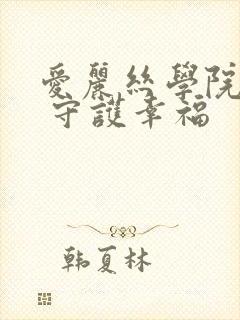 愛麗絲學院
守護幸福
韩夏林